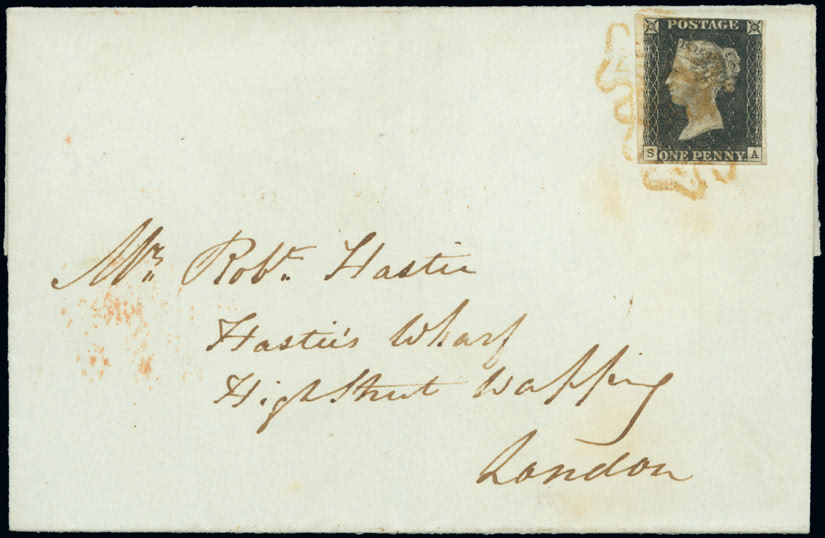 POSTAGE
S ONE PENNY. A
Mr. Robt. Hastie
Hastie's Wharf
High Street Wapping
London